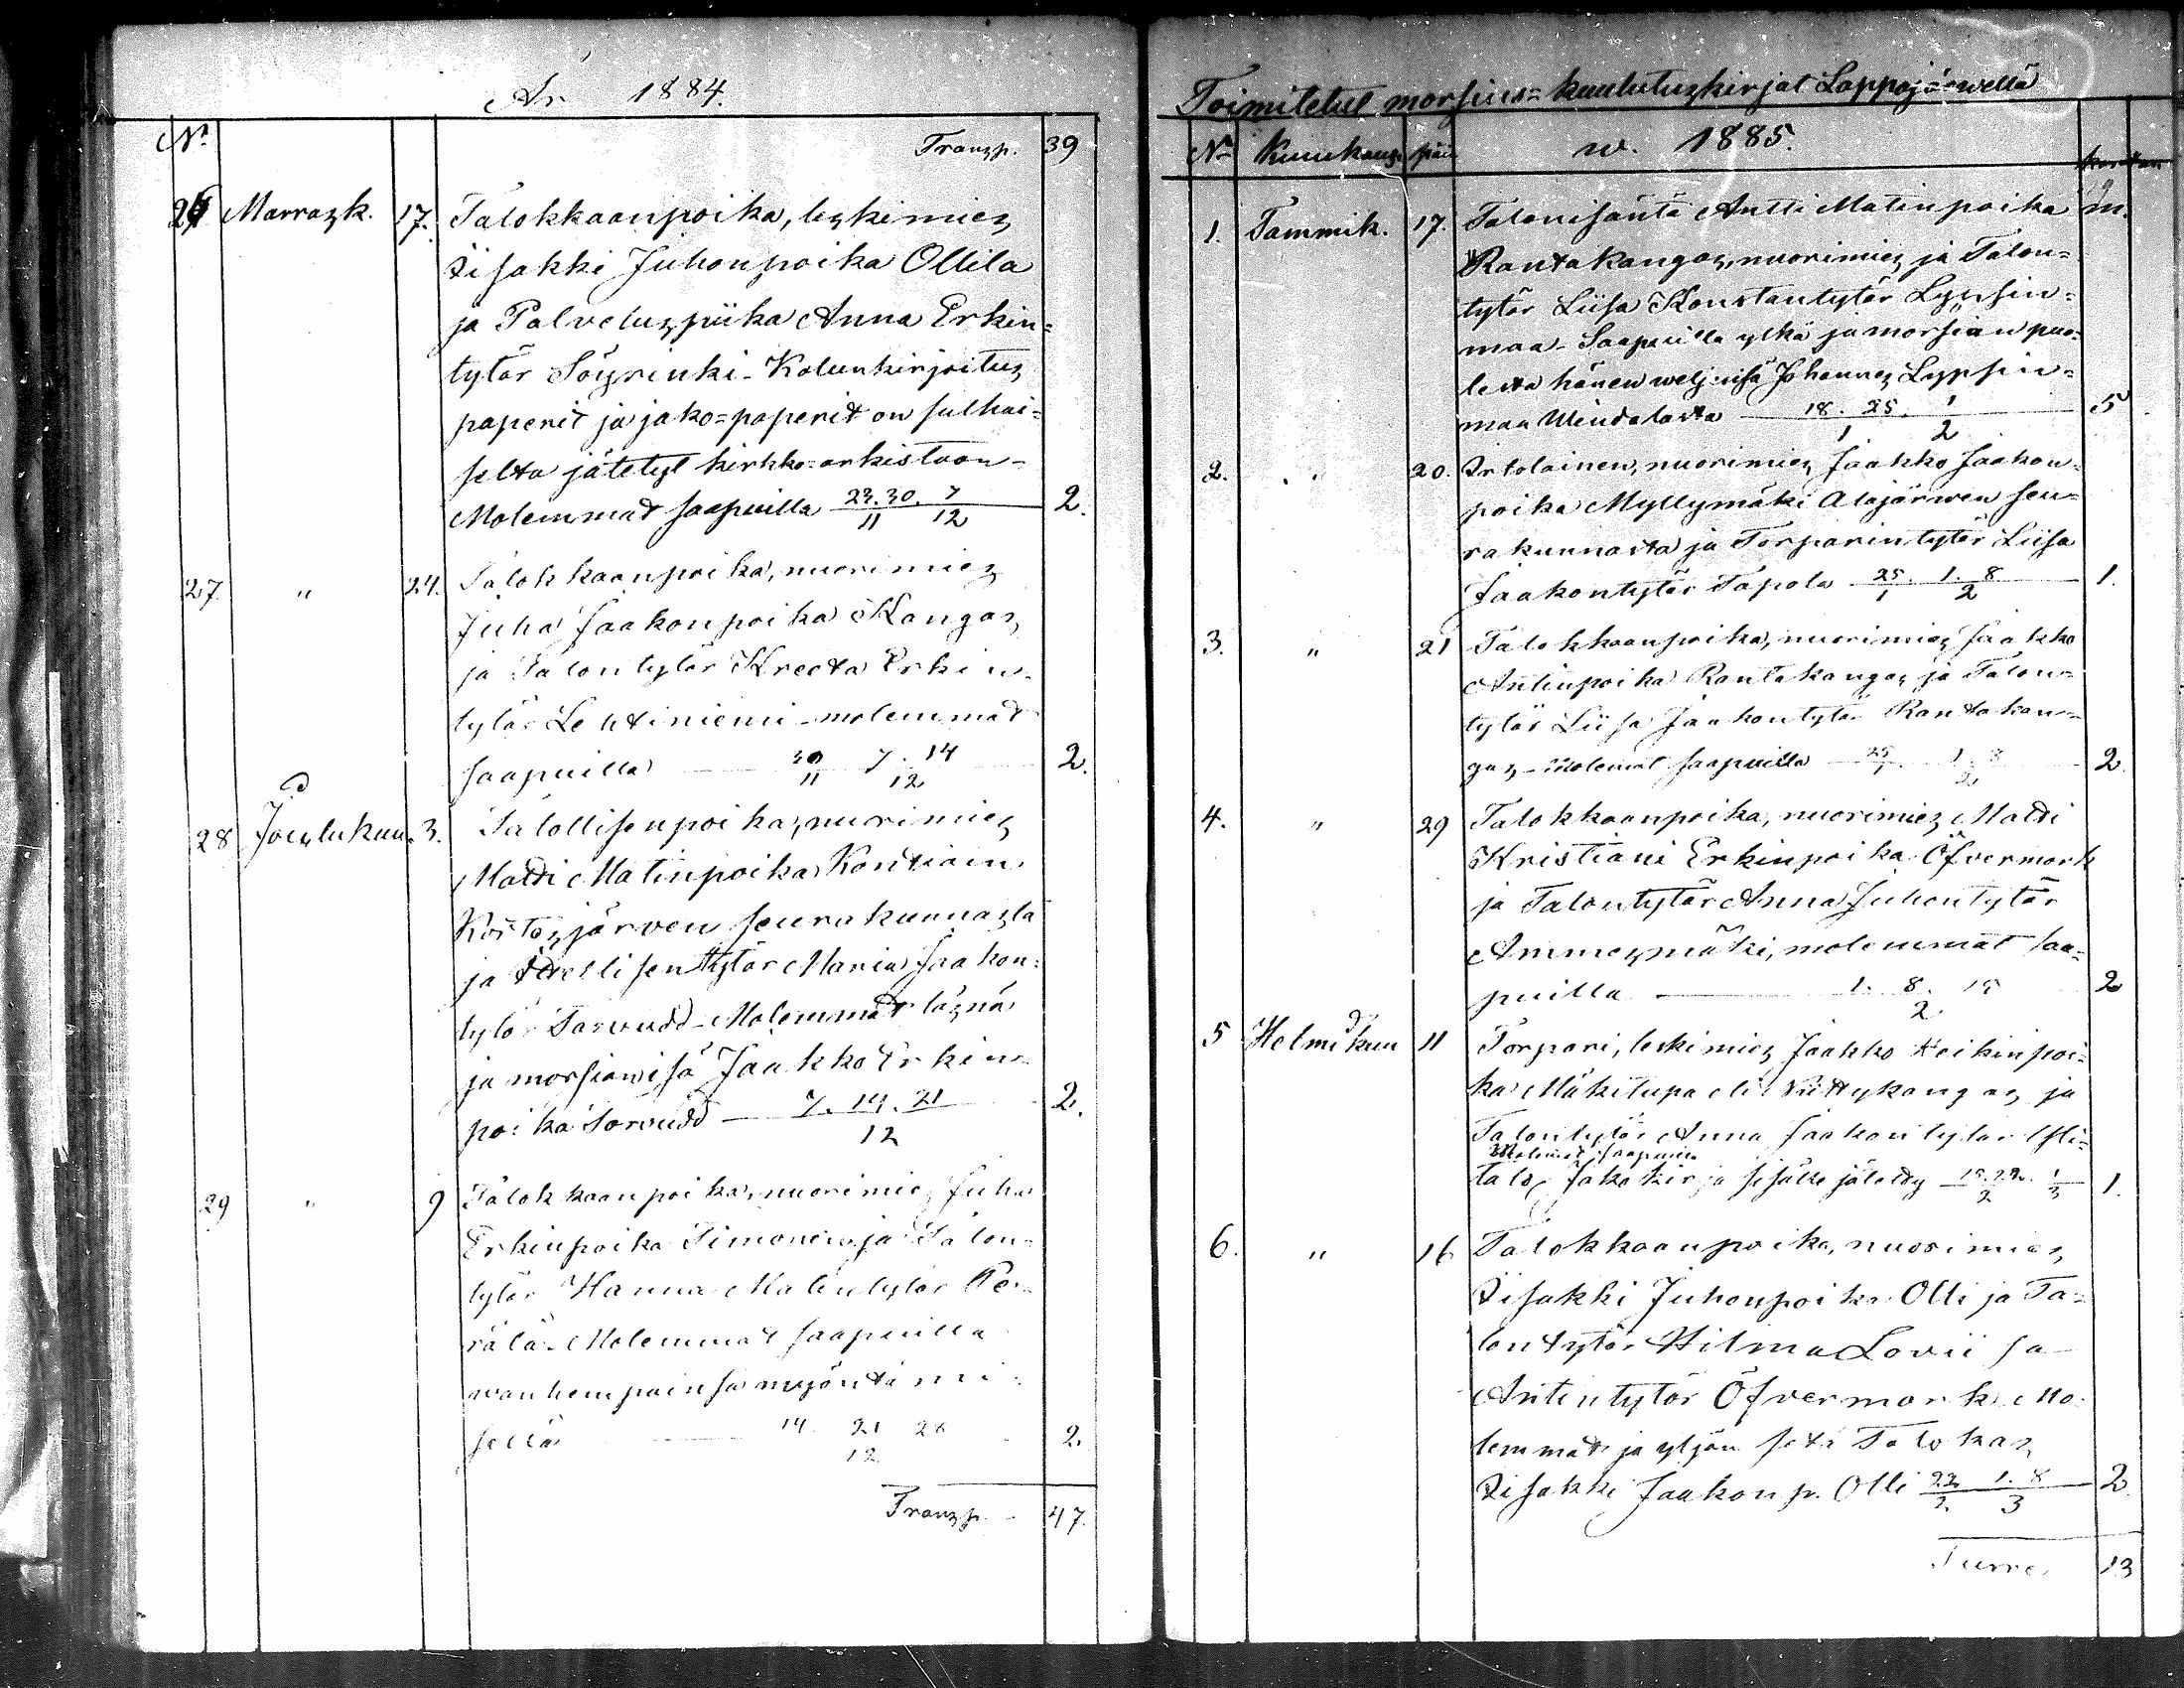 År 1884.
No Transp. 39
26 Marrask. 17. Talokkaanpoika, leskimies
Iisakki Juhonpoika Ollila
ja Palveluspiika Anna Erkin=
tytär Söyrinki - Kolunkirjoitus
paperit ja jako=paperit on sulhai=
selta jätetyt kirkko-arkistoon -
Molemmat saapuilla 23. 30. 7 2.
11 12
27 " 24. Talokkaanpoika, nuorimies
Juha Jaakonpoika Kangas
ja Talontytär Kreeta Erkin-
tytär Lehtiniemi - molemmat
saapuilla 30 7. 14 2.
11 12
28 Joulukuu. 3. Talollisenpoika, nuorimies
Matti Matinpoika Kontiain
Kortesjärven seurakunnasta
ja Talollisentytär Maria Jaakon=
tytär Tarvudd - Molemmat läsnä
ja morsiamisä Jaakko Erkin-
poika Sarvudd - 7. 14. 21 2.
12
29 " 9 Talokkaanpoika, nuorimies Juha
Erkinpoika Timonen ja Talon-
tytär Hanna Matintytär Pe-
rälä. Molemmat saapuilla
wanhempainsa myöntämi-
sellä 14. 21 28 2.
12
Transp. - 47.
Toimitetut morsius=kuulutuskirjat Lappajärwellä
No Kuukaus. päiv w. 1885.
1. Tammik. 17. Talonisäntä Antti Matinpoika m.
Rantakangas, nuorimies ja Talon=
tytär Liisa Konstantytär Lypsin=
maa - Saapuilla ylkä ja morsian puo=
lesta hänen weljensä Johannes Lypsin=
maa Windalasta 18. 25. 1 5
1 2
2. " 20. Itolainen, nuorimies Jaakko Jaakon-
poika Myllymäki Alajärwen seu=
rakunnasta ja Torparintytär Liisa
Jaakontytär Tapola 25. 1. 8 1.
1 2
3. " 21 Talokkaanpoika, nuorimies Jaakko
Antinpoika Rantakangas ja Talon=
tytär Liisa Jaakontytär Rantakan=
gas - Molemat saapuilla 25 1. 8 2
1 2
4. " 29 Talokkaanpoika, nuorimies Matti
Kristiani Erkinpoika Öfvermark
ja Talontytär Anna Juhontytär
Ammesmäki, molemmat saa=
puilla 1. 8. 15 2
2
5 Helmikuu 11 Torpari, leskimies Jaakko Heikinpoi=
ka Mäkitupa eli Niittykangas ja
Talontytär Anna Jaakontytär Yli=
Molemat saapuilla
talo, Jakokirja sisälle jätetty 15. 22. 1 1.
2 3
6. " 16 Talokkaanpoika, nuorimies
Iisakki Juhonpoika Olli ja Ta=
lontytär Hilma Loviisa
Antintytär Öfvermark. Mo-
lemmat ja yljän setä Talokas
Iisakki Jaakonp. Olli 22 1. 8 2
2 3
13